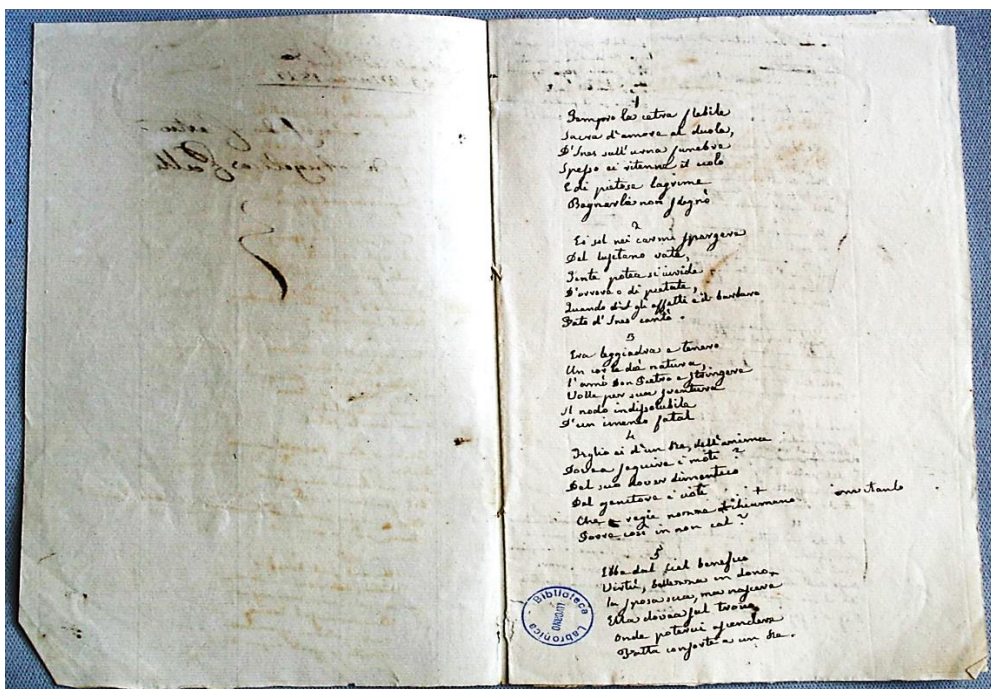 1
Tempro la cetra flebile
Sacra d'amore al duolo,
D'Ines sull'urna funebre
Spesso ei ritenne il volo
E di pietose lagrime
Bagnarla non sdegnò
2
Ei sol nei carmi spargere
Del lusitano vate,
Tinte potea sì vivide
D'orrore e di pietate,
Quando gli affetti e il barbaro
Fato d'Ines cantò.
3
Era leggiadra e tenero
Un cor le diè natura,
L'amò Don Pietro e stringere
Volle per sua sventura
Il nodo indissolubile
D'un imeneo fatal
4
Figlio ei d'un Re, dell'anima
Dovea seguire i moti?
Del suo dover dimentico
Del genitore i voti
Che a regie nozze + invitanlo
Porre così in non cal?
5
Ebbe dal ciel benefico
Virtù, bellezza in dono,
La sposa sua, ma nascere
Ella dovea sul trono
Onde potervi ascendere
Fatta consorte a un Re.
Biblioteca Labronica
LIVORNO